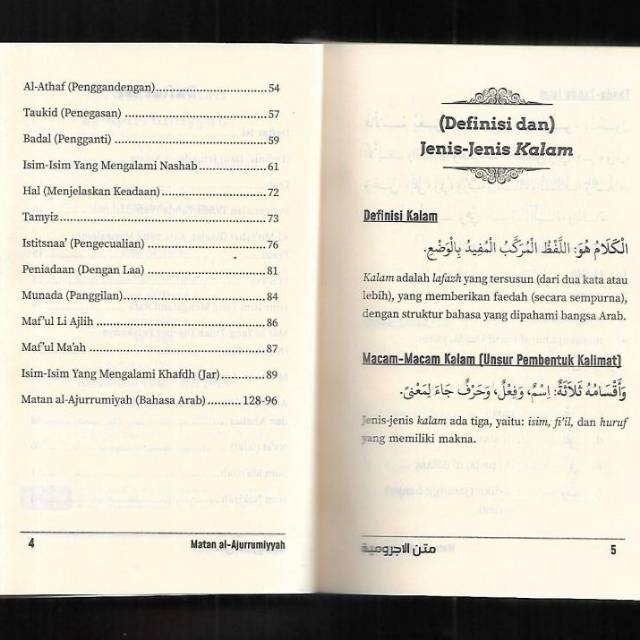 Al-Athaf (Penggandengan)....................................54
Taukid (Penegasan)............................................57
Badal (Pengganti)...............................................59
Isim-Isim Yang Mengalami Nashab.......................61
Hal (Menjelaskan Keadaan)................................72
Tamyiz.............................................................73
Istitsnaa' (Pengecualian)....................................76
Peniadaan (Dengan Laa)....................................81
Munada (Panggilan)...........................................84
Maf'ul Li Ajlih...................................................86
Maf'ul Ma'ah....................................................87
Isim-Isim Yang Mengalami Khafdh (Jar)................89
Matan al-Ajurrumiyah (Bahasa Arab)..........128-96
4 Matan al-Ajurrumiyyah
(Definisi dan)
Jenis-Jenis Kalam
Definisi Kalam
الْكَلَامُ هُوَ: اللَّفْظُ الْمُرَكَّبُ الْمُفِيْدُ بِالْوَضْعِ.
Kalam adalah lafazh yang tersusun (dari dua kata atau
lebih), yang memberikan faedah (secara sempurna),
dengan struktur bahasa yang dipahami bangsa Arab.
Macam-Macam Kalam (Unsur Pembentuk Kalimat)
وَأَقْسَامُهُ ثَلَاثَةٌ: اِسْمٌ، وَفِعْلٌ، وَحَرْفٌ جَاءَ لِمَعْنًى.
Jenis-jenis kalam ada tiga, yaitu: isim, fi'il, dan huruf
yang memiliki makna.
متن الاجرومية 5